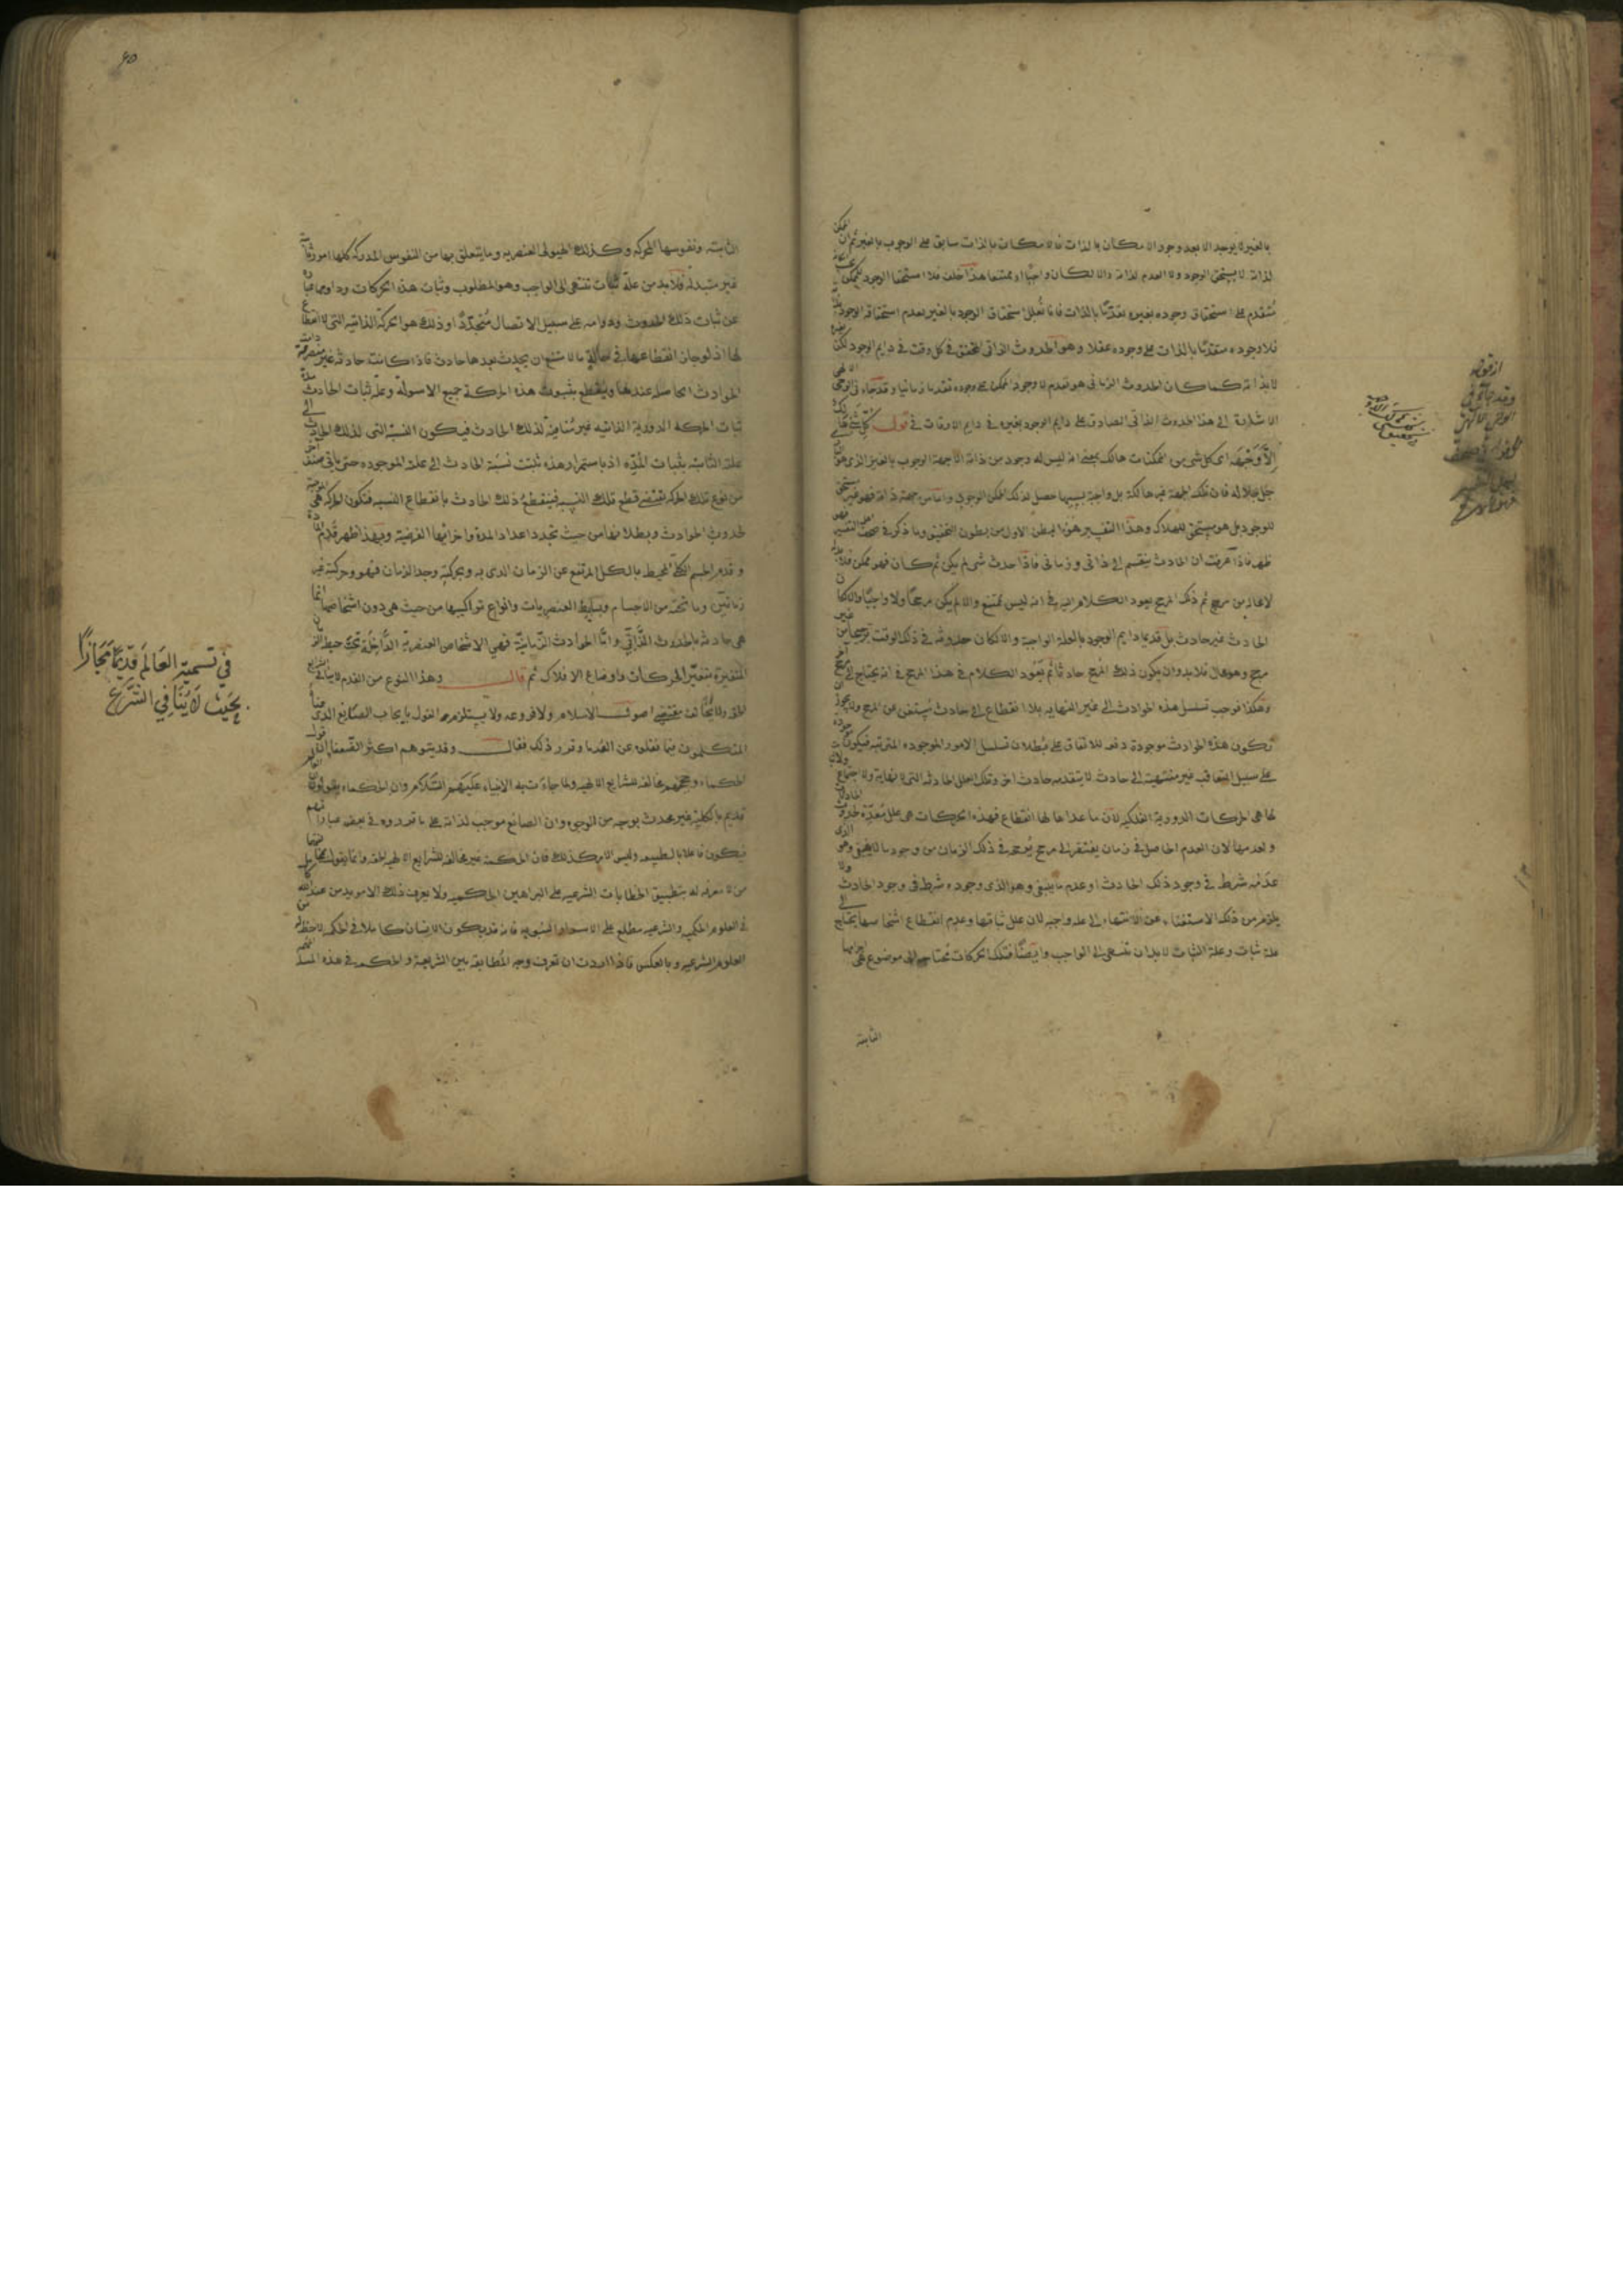 بالغير لا يوجد الا بعد وجود الامكان بالذات فالامكان بالذات سابق على الوجوب بالغير ثم ان الممكن
لذاته لا يستحق الوجود ولا العدم لذاته والا لكان واجبا او ممتنعا هذا خلف فلا استحقاق الوجود للممكن
متقدم على استحقاق وجوده بغيره تقدما بالذات استحقاق الوجود بالغير بعدم استحقاقه الوجود
فلا وجوده متقدما بالذات على وجوده عقلا وهو الحدوث الذاتى المحقق فى كل وقت فى دايم الوجود لكن
لا بذاته كما كان الحدوث الزمانى هو تقدم لا وجود الممكن على وجوده تقدما زمانيا وقد جاء فى الوحى الالهى
الاشارة الى هذا الحدوث الذاتى الصادق على دايم الوجود بغيره فى دايم الاوقات فى قوله كل شئ هالك
الا وجهه اى كل شئ من الممكنات هالك بمعنى انه ليس له وجود من ذاته الا جهة الوجوب بالغير الذى هو
جل جلاله فان تلك الجهة غير هالكة بل واجبة بسببها حصل لذلك الممكن الوجود واما من جهة ذاته فهو غير مستحق
للوجود بل هو مستحق للهلاك وهذا التفسير هو البطن الاول من بطون التحقيق وما ذكر فى صحف اهل التفسير فهو
ظهر فاذا عرفت ان الحادث ينقسم الى ذاتى وزمانى فاذا حدث شئ لم يكن ثم كان فهو ممكن فلا بد
لامكانه من مرجح ثم ذلك المرجح يعود الكلام اليه فى انه ليس ممتنع والا لم يكن مرجحا ولا واجبا والا لكان
الحادث غير حادث بل قديما دايم الوجود بالعلة الواجبة والا لكان حدوثه فى ذلك الوقت ترجيحا من غير
مرجح وهو محال فلا بد وان يكون ذلك المرجح حادثا ثم يعود الكلام فى هذا المرجح فى انه يحتاج الى مرجح آخر
وهكذا فوجب تسلسل هذه الحوادث الى غير النهاية بلا انقطاع الى حادث يستغنى عن المرجح ولا يجوز ان
تكون هذه الحوادث موجودة دفعة للاتفاق على بطلان تسلسل الامور الموجوده المترتبة فيكون
على سبيل التعاقب غير منتهية الى حادث لا يتقدمه حادث اخر وتلك العلل الحادثة التى لا نهاية ولا اجتماع
لها هى الحركات الدورية الفلكية لان ما عداها لها انقطاع فهذه الحركات هى علل معدة لحدوث الحادث
ولعدمها لان العدم الحاصل فى زمان يفتقر الى مرجح يوجد فى ذلك الزمان من وجود ما لا ينبغى وهو الذى
عدمه شرط فى وجود ذلك الحادث او عدم ما ينبغى وهو الذى وجوده شرط فى وجود الحادث ولا
يلزم من ذلك الاستغناء عن الانتهاء الى علة واجبة لان علل ثباتها وعدم انقطاع اشخاصها يحتاج الى
علة ثبات وعلة الثبات لا بد ان تنتهى الى الواجب وايضا فتلك الحركات محتاجة الى موضوع هى اجرامها
الثابتة
از قوله
وقد جاء فى
الوحى الالهى
٤٥
الثابتة ونفوسها المحركة وكذلك الهيولى العنصرية وما يتعلق بها من النفوس المدركة كلها امور ثابتة
غير متبدلة فلا بد من علة ثبات تنتهى الى الواجب وهو المطلوب وثبات هذه الحركات ودوامها عبارة
عن ثبات ذلك الحدوث ودوامه على سبيل الاتصال متجددا وذلك هو الحركة الذاتية التى لا انقطاع
لها اذ لو جاز انقطاعها فى حالة ما لامتنع ان يحدث بعدها حادث فاذا كانت حادثة غير منصرمة ذات
الحوادث الحاصلة عندها وينقطع بثبوت هذه الحركة جميع الاسولة وعلة ثبات الحادث مدة
ثبات الحركة الدورية الذاتية غير منافية لذلك الحادث فيكون النسبة التى لذلك الحادث الى
علته الثابتة بثبات المدة اذ باستمرار هذه تثبت نسبة الحادث الى علته الموجوده حتى ياتى صنف آخر
من نوع تلك الحركة يقتضى قطع تلك النسبة فينقطع ذلك الحادث بانقطاع النسبة فتكون الحركة هى الموجبة
لحدوث الحوادث وبطلانها من حيث تجدد اعداد المدة واجزائها الفرضية وبهذا ظهر قدم المادة
وقدم الجسم الكلى المحيط بالكل المرتفع عن الزمان الذى به وبحركته وجد الزمان فهو وحركته غير
زمانيين وما تحته من الاجسام وبسايط العنصريات وانواع تراكيبها من حيث هى دون اشخاصها انما
هى حادثة بالحدوث الذاتى واما الحوادث الزمانية فهى الاشخاص العنصرية الداخلة تحت حيطة الزمان
المتغيرة بتغير الحركات واوضاع الافلاك ثم قال وهذا النوع من القدم لا ينافى الشرايع
الحقة ولا يخالف مقتضى اصول الاسلام ولا فروعه ولا يستلزم القول بايجاب الصانع الذى هنأ
المتكلمون فيما نقلوه عن القدما وقرر ذلك فقال وقد يتوهم اكثر الضعفا ان قول
الحكماء وحججهم مخالفة للشرايع الالهية ولما جاءت به الانبياء عليهم السلام وان الحكماء يقولون ان العالم
قديم بالكلية غير محدث بوجه من الوجوه وان الصانع موجب لذاته على ما قرروه فى بعض عباراتهم
فيكون فاعلا بالطبيعة وليس الامر كذلك فان الحكمة غير مخالفة للشرايع الالهية الحقة وانما يقول بمخالفتها
من لا معرفة له بتطبيق الخطابات الشرعية على البراهين الحكمية ولا يعرف ذلك الا مويد من عند الله كامل
فى العلوم الحكمية والشرعية مطلع على الاسرار النبوية فانه قد يكون الانسان كاملا فى الحكمة لا حظ له من
العلوم الشرعية وبالعكس فاذا اردت ان تعرف وجه المطابقة بين الشريعة والحكمة فى هذه المسئلة
فى تسمية العالم قديما مجازا
بحيث لا ينافى الشرع